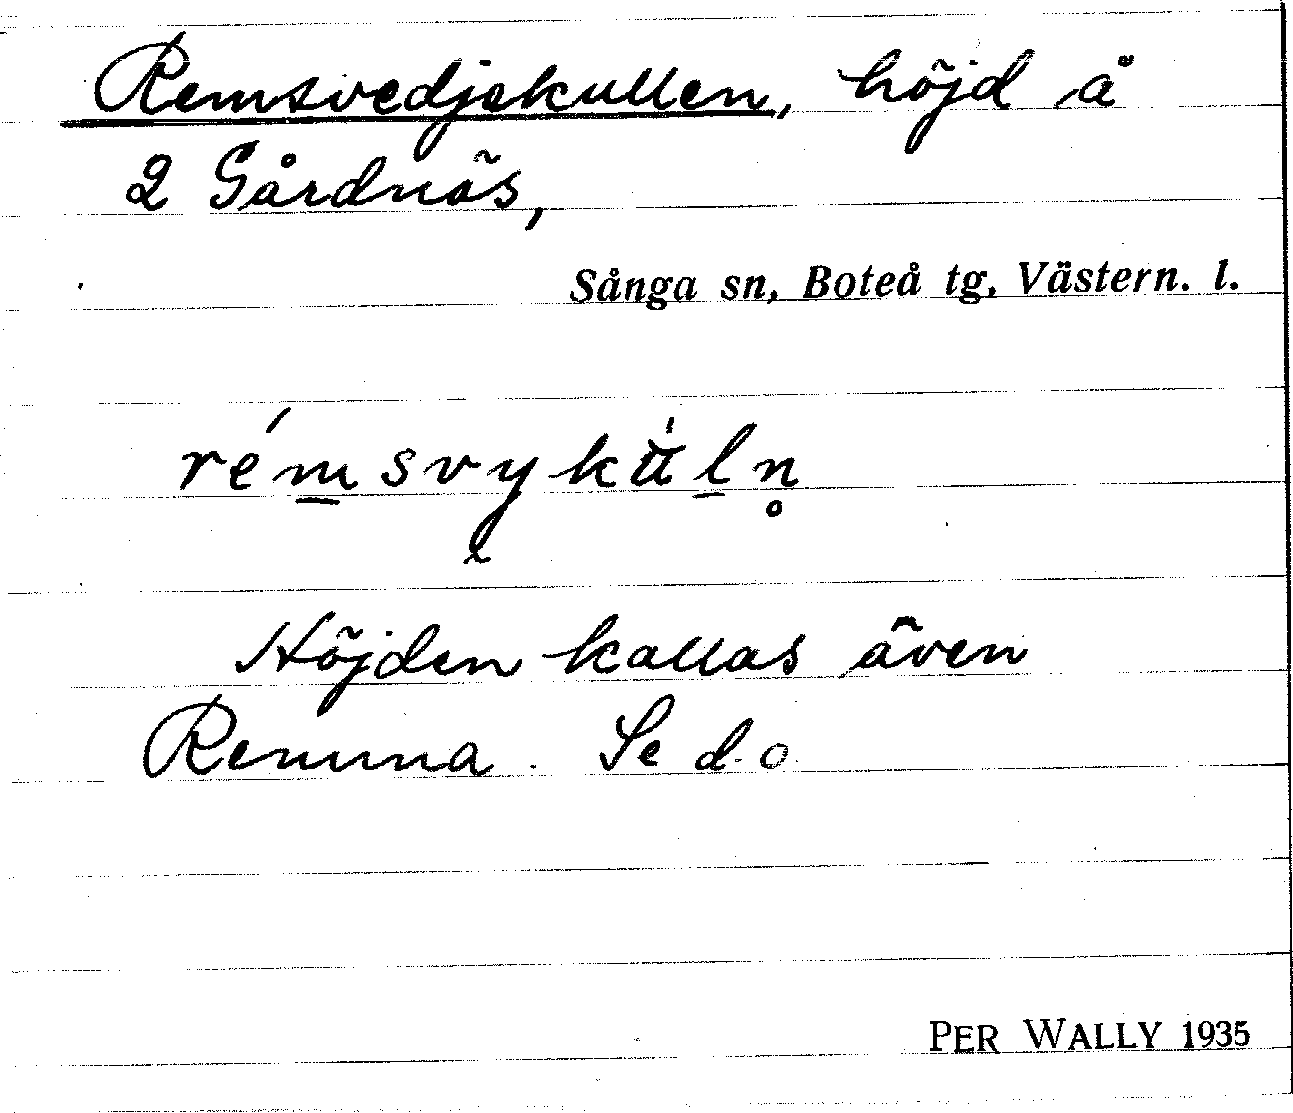 Remsvedjekullen, höjd å
2 Gårdnäs,
Sånga sn, Boteå tg, Västern. l.
Höjden kallas även
Remna. Se d.o
PER WALLY 1935